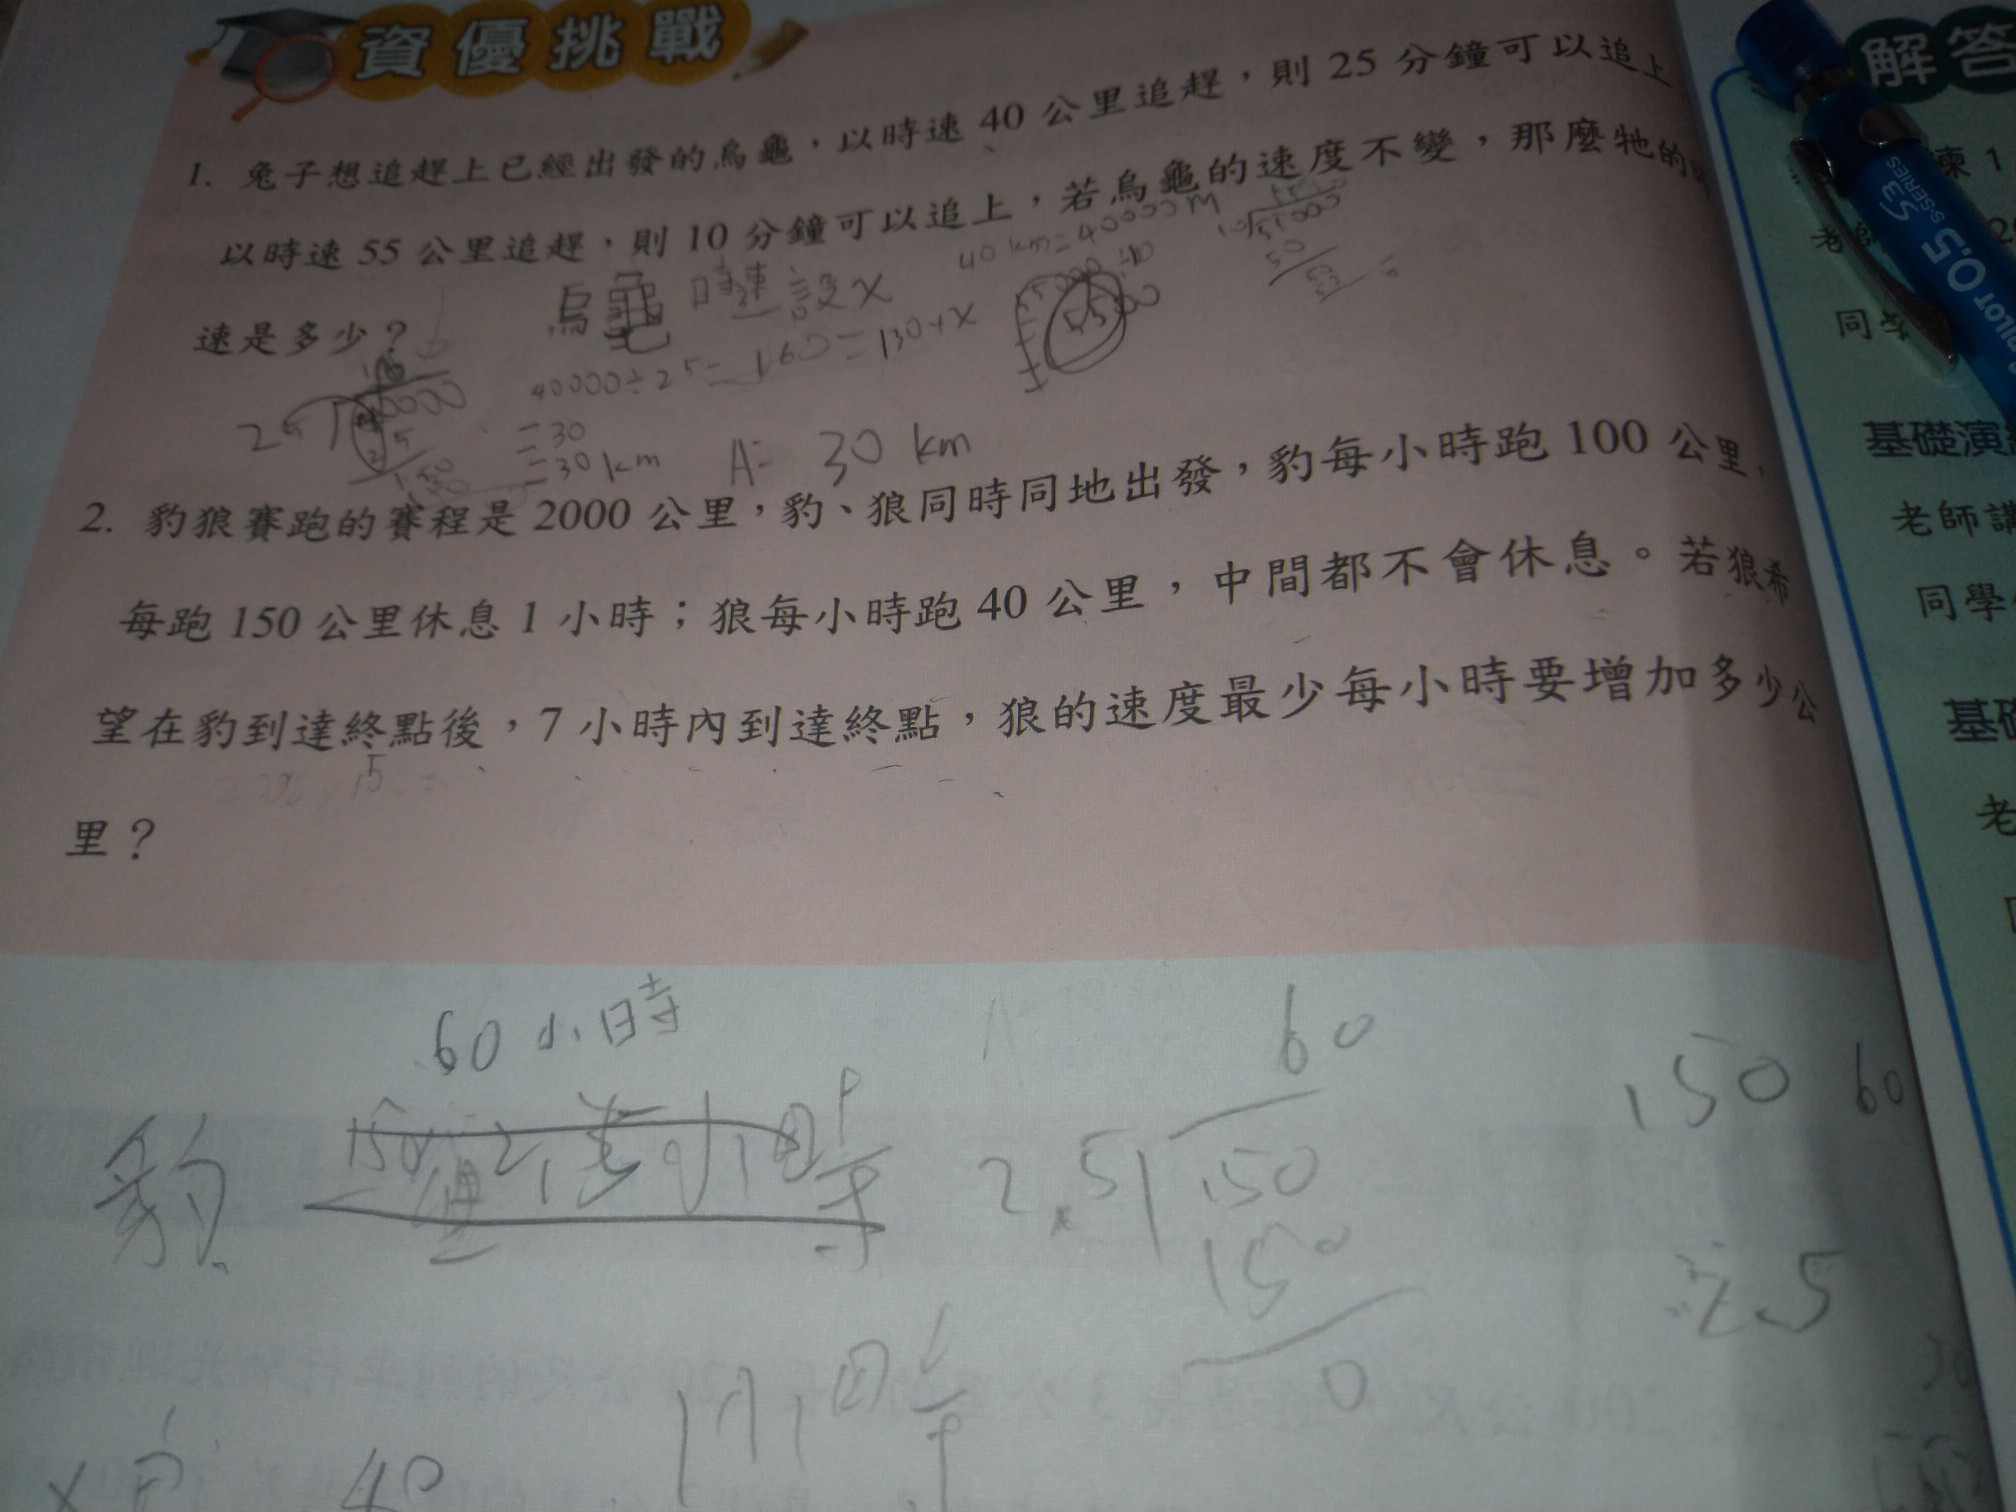 資優挑戰
1. 兔子想追趕上已經出發的烏龜，以時速 40 公里追趕，則 25 分鐘可以追上
以時速 55 公里追趕，則 10 分鐘可以追上，若烏龜的速度不變，那麼牠的
速是多少？
烏龜 時速 設 x
40 km = 40000 m
40000÷25= 160=130+x
=30
=30 km
A= 30 km
5500
2. 豹狼賽跑的賽程是 2000 公里，豹、狼同時同地出發，豹每小時跑 100 公里，
每跑 150 公里休息 1 小時；狼每小時跑 40 公里，中間都不會休息。若狼希
望在豹到達終點後，7 小時內到達終點，狼的速度最少每小時要增加多少公
里？
60 小時
豹
2.5
60
150
150
0
150 60
2.5
40
解答
練 1
老師
同學
基礎演
老師講
同學
基礎
老
PILOT 0.5
S-SERIES
S3